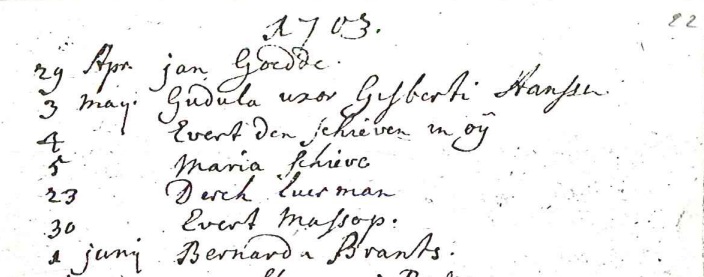 1703.
22
29 Apr. jan Goedde.
3 maij. Gudula uxor Gisberti Hanssen.
4 Evert den schieven in oÿ
5 Maria schieve
23 Derck Luerman
30 Evert Massop.
1 junij Bernarda Brants.